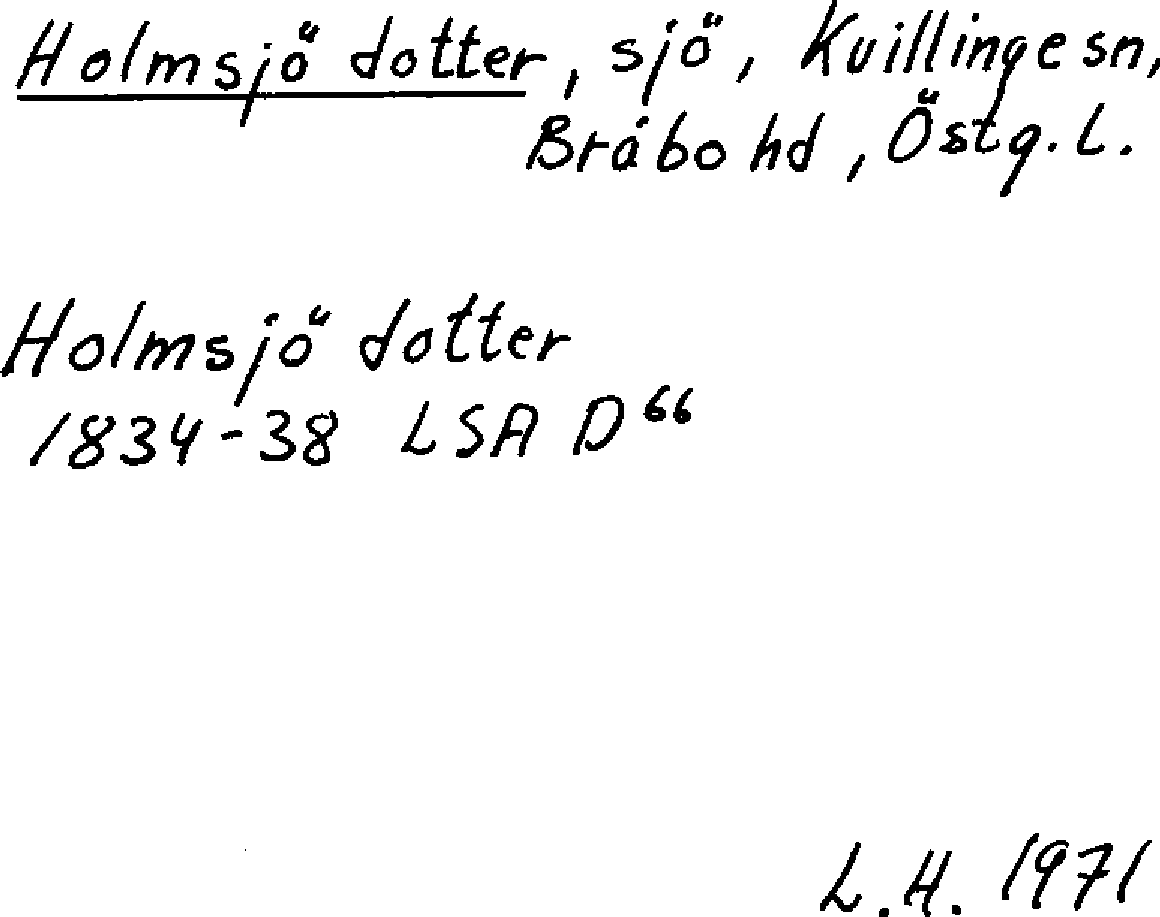 Holmsjö dotter, sjö, Kvillinge sn,
Bråbo hd, Östg. L.
Holmsjö dotter
1834-38 LSA D66
L.H. 1971